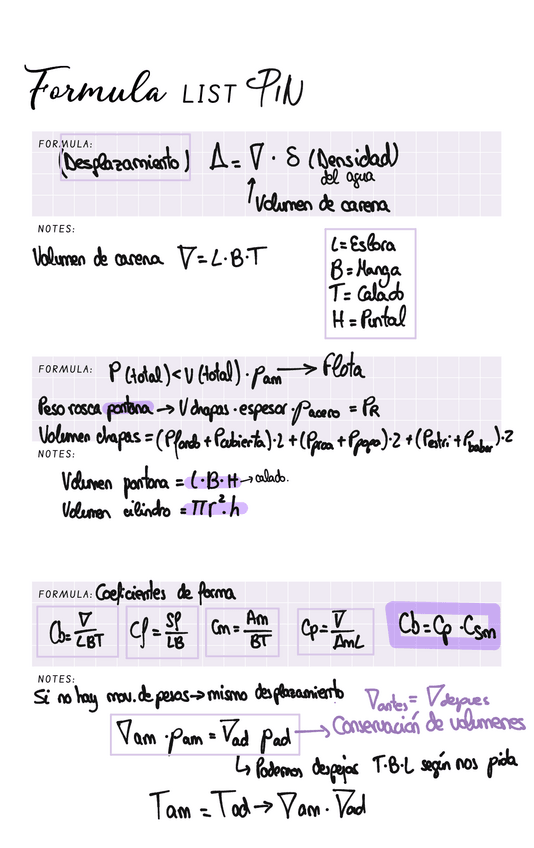 Formula LIST PIN
FORMULA:
(Desplazamiento) Δ = ∇ · δ (Densidad)
del agua
↑ Volumen de carena
NOTES:
Volumen de carena ∇ = L·B·T
L = Eslora
B = Manga
T = Calado
H = Puntal
FORMULA: P(total) < V(total) · ρam → Flota
Peso rosca pontona → V chapas · espesor · ρacero = PR
Volumen chapas = (Pfondo + Pcubierta)·2 + (Pproa + Ppopa)·2 + (Pestri + Pbabor)·2
NOTES:
Volumen pontona = L·B·H → calado.
Volumen cilindro = πr²·h
FORMULA: Coeficientes de forma
Cb = ∇/LBT Cf = Sf/LB Cm = Am/BT Cp = ∇/AmL Cb = Cp · Csm
NOTES:
Si no hay mov. de pesas → mismo desplazamiento ∇antes = ∇despues
∇am · ρam = ∇ad ρad → Conservación de volumenes
↳ Podemos despejar T·B·L según nos pida
Tam = Tad → ∇am · ∇ad